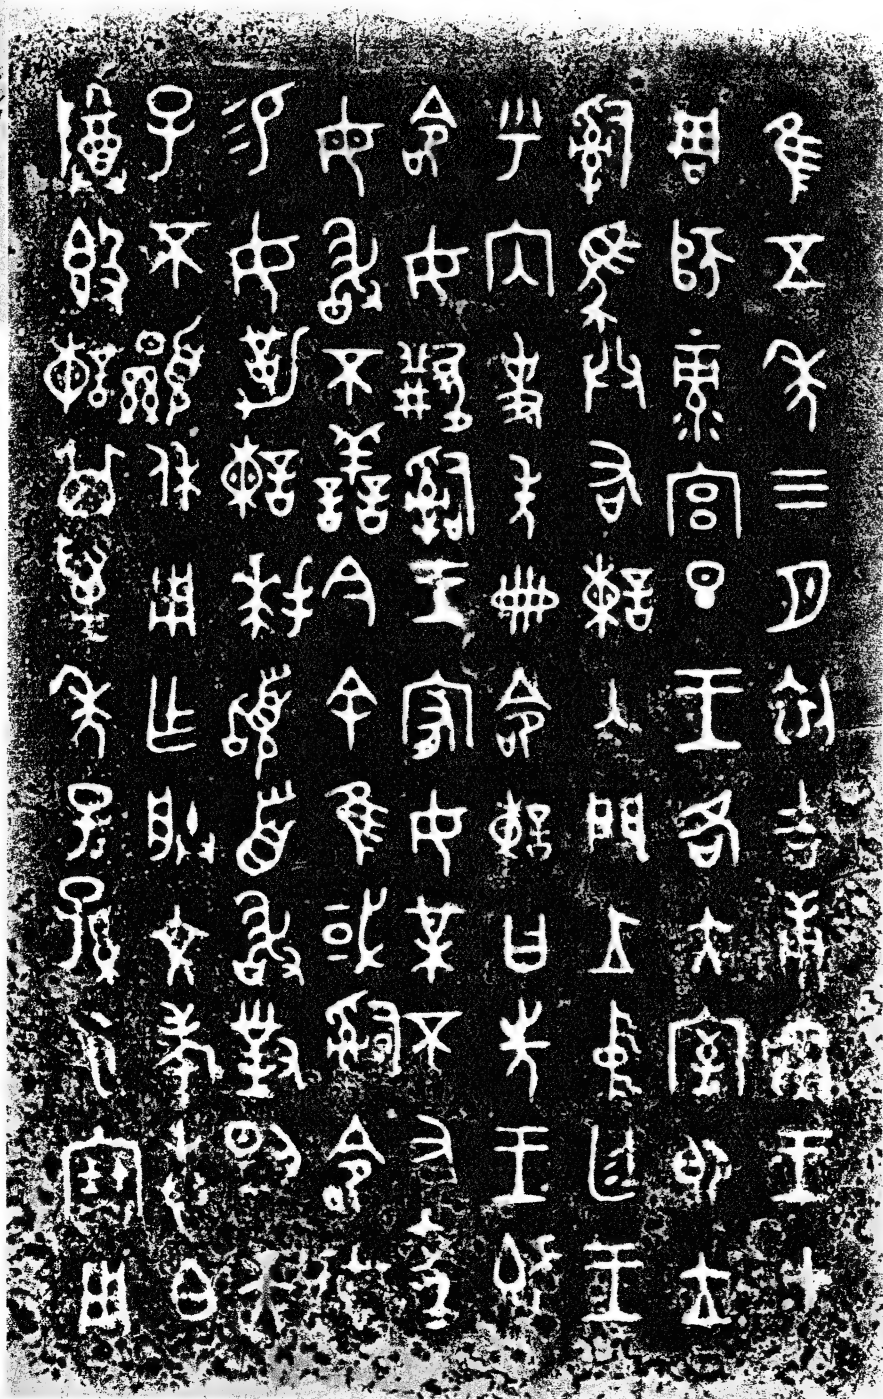 隹五年三月初吉庚寅王才
周師彔宮旦王各大室即立
𤔲馬共右諫入門立中廷王
乎內史𡚬冊命諫曰先王既
命女𩁹𤔲王宥女某不又聞
毋敢不善今余隹或𤔲命女
易女勒諫拜𩒨首敢對揚天
子不顯休用乍朕文考惠白
尊𣪘諫其萬年子子孫孫永寶用